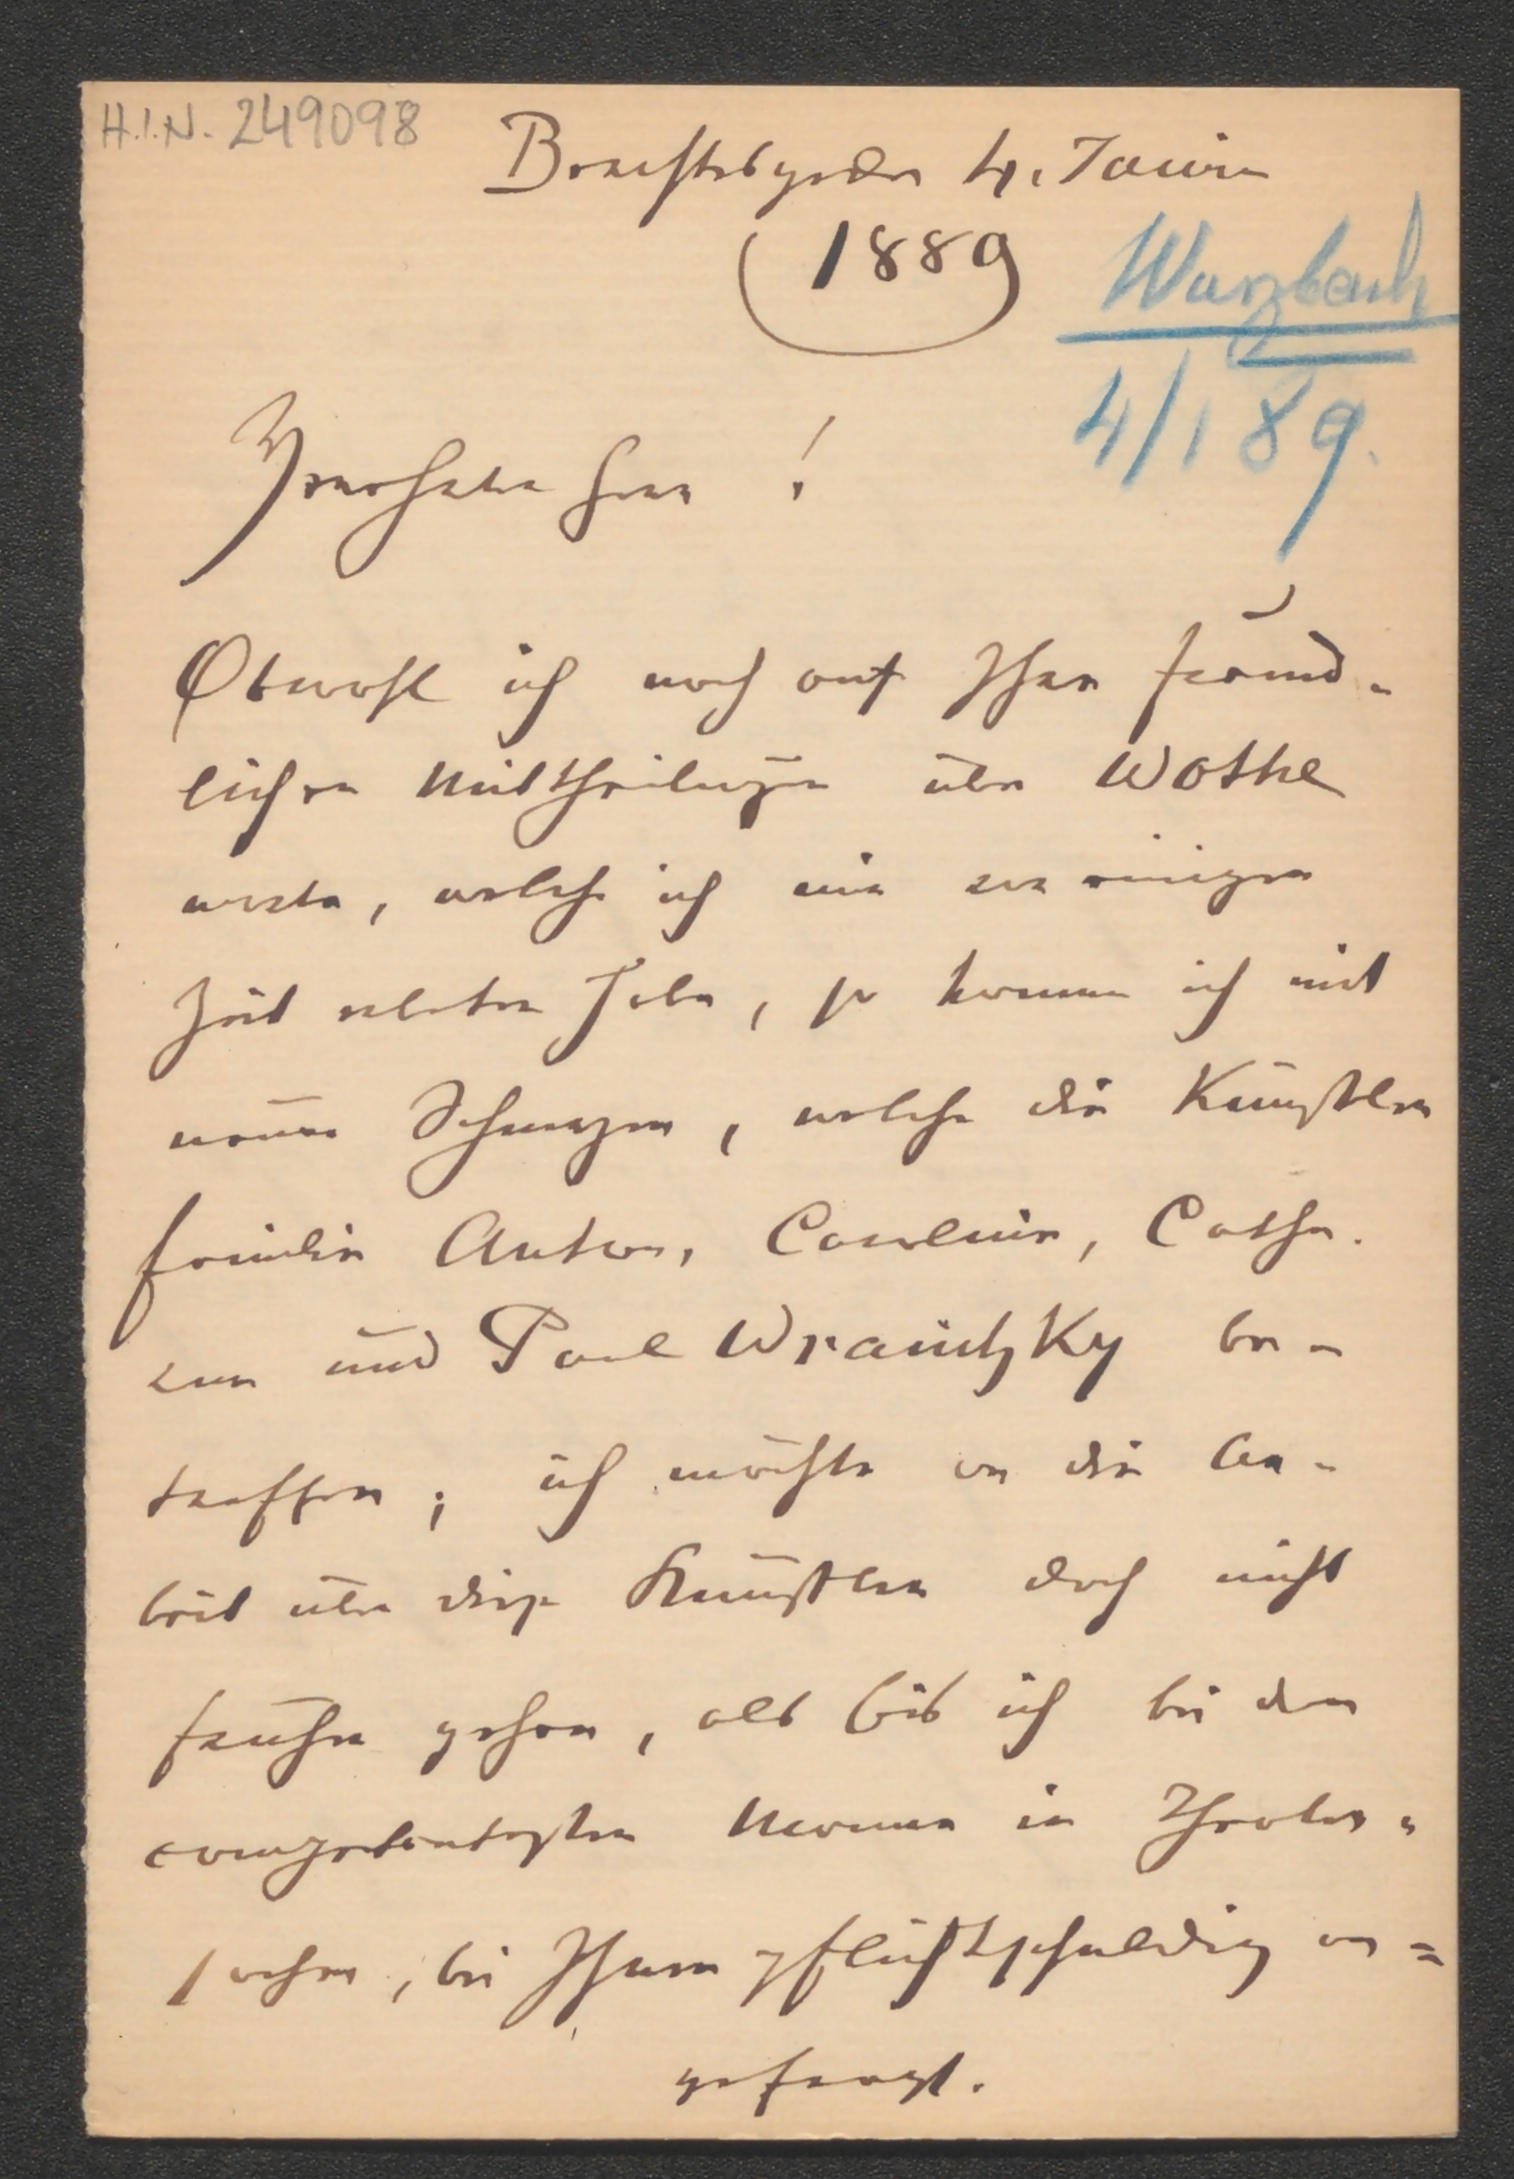 H.I.N. 249098
Berchtesgaden 4. Jänner
1889
Wurzbach
4/1 89.
Verehrter Herr!
Obwohl ich noch auf Ihre freund-
lichen Mittheilungen über Wothe
warte, welche ich mir vor einiger
Zeit erbeten habe, so komme ich mit
neuen Schmerzen, welche die Künstler
familie Anton, Caroline, Catha-
rina und Paul Wranitzky be-
treffen; ich möchte an die Ar-
beit über diese Künstler doch nicht
früher gehen, als bis ich bei dem
competentesten Manne in Theater-
sachen, bei Ihnen pflichtschuldig an-
gefragt.